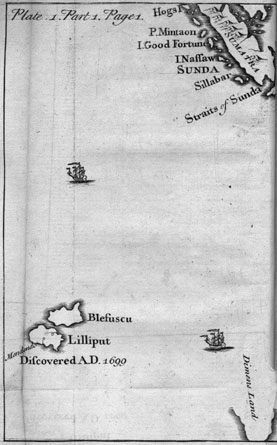 Plate. 1. Part. 1. Page 1.
Hogs I
SUMATRA
P. Mintaon
I. Good Fortune
I. Naſsaw
SUNDA
Sillabar
Straits of Sunda
Blefuscu
Lilliput
Mendendo
Discovered A.D. 1699
Dimens Land